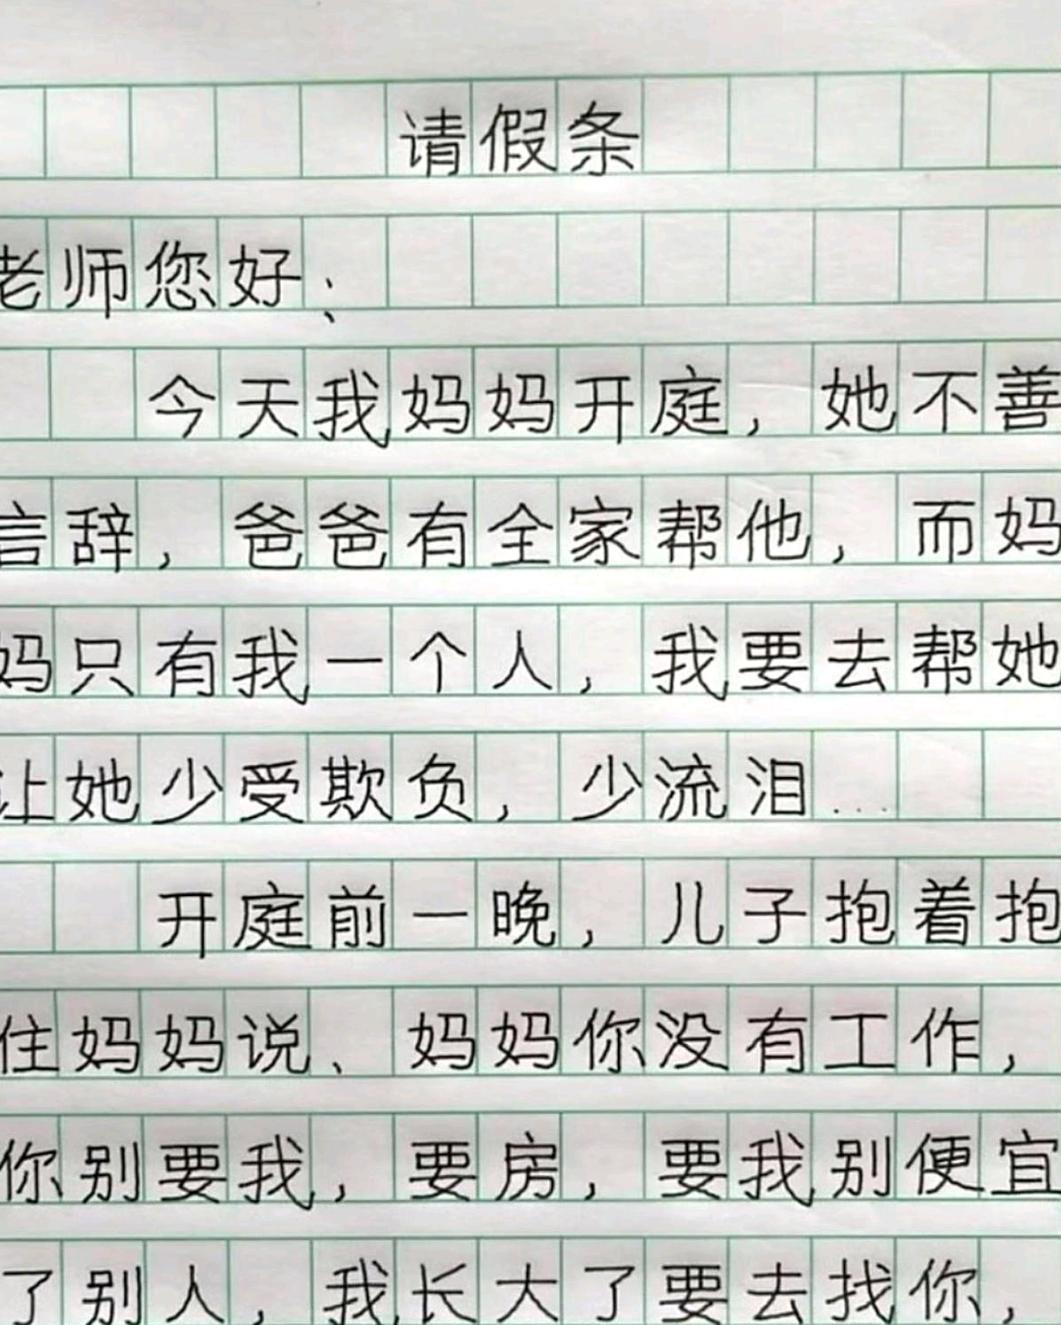 请假条
老师您好；
今天我妈妈开庭，她不善
言辞，爸爸有全家帮他，而妈
妈只有我一个人，我要去帮她
让她少受欺负，少流泪...
开庭前一晚，儿子抱着抱
住妈妈说、妈妈你没有工作，
你别要我，要房，要我别便宜
了别人，我长大了要去找你，